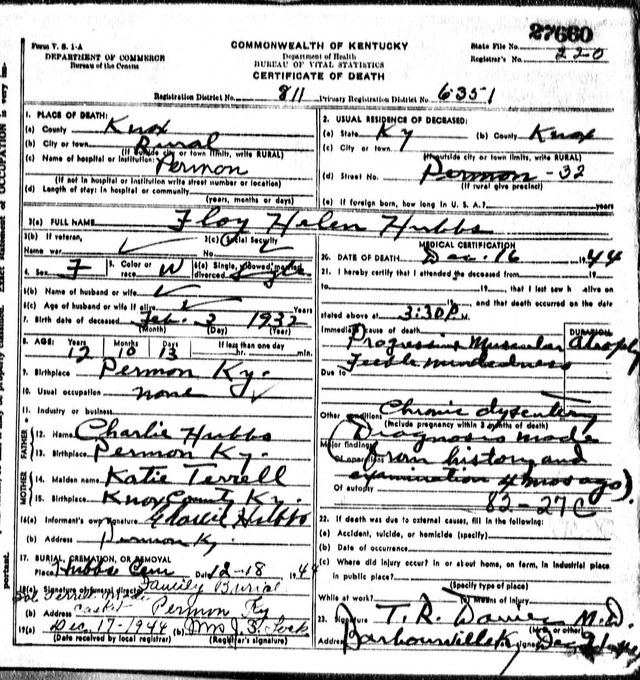 27660
Form V. S. 1-A
DEPARTMENT OF COMMERCE
Bureau of the Census
COMMONWEALTH OF KENTUCKY
Department of Health
BUREAU OF VITAL STATISTICS
CERTIFICATE OF DEATH
State File No.
Registrar's No. 220
Registration District No. 811 Primary Registration District No. 6351
1. PLACE OF DEATH:
(a) County Knox
(b) City or town Rural
(If outside city or town limits, write RURAL)
(c) Name of hospital or institution: Permon
(If not in hospital or institution write street number or location)
(d) Length of stay: In hospital or community
(years, months or days)
2. USUAL RESIDENCE OF DECEASED:
(a) State Ky (b) County Knox
(c) City or town
(If outside city or town limits, write RURAL)
(d) Street No. Permon - 32
(If rural give precinct)
(e) If foreign born, how long in U. S. A.? years
3(a) FULL NAME Floy Helen Hubbs
3(b) If veteran, Name war
3(c) Social Security No.
4. Sex F 5. Color or race W 6(a) Single, widowed, married, divorced Single
6(b) Name of husband or wife
6(c) Age of husband or wife if alive Years
7. Birth date of deceased Feb. 3 1932
(Month) (Day) (Year)
8. AGE: Years Months Days If less than one day
12 10 13 hr. min.
9. Birthplace Permon Ky.
10. Usual occupation none
11. Industry or business
FATHER
12. Name Charlie Hubbs
13. Birthplace Permon Ky.
MOTHER
14. Maiden name Katie Terrell
15. Birthplace Knox County Ky.
16(a) Informant's own signature Charlie Hubbs
(b) Address Permon Ky
17. BURIAL, CREMATION, OR REMOVAL
Place Hubbs Cem Date 12-18 1944
18(a) Signature of funeral director Family Burial
casket
(b) Address Permon Ky
19(a) Dec. 17-1944 (b) Mrs J. S. Lock
(Date received by local registrar) (Registrar's signature)
MEDICAL CERTIFICATION
20. DATE OF DEATH Dec. 16 1944
21. I hereby certify that I attended the deceased from 19
to 19, that I last saw h alive on
19, and that death occurred on the date
stated above at 3:30 P M.
Immediate cause of death DURATION
Progressive Muscular Atrophy
Feeble mindedness
Due to
Other conditions Chronic dysentery
(Include pregnancy within 3 months of death)
Major findings: (Diagnosis made
Of operations from history and
examination 4 mos ago).
Of autopsy
82-27C
22. If death was due to external causes, fill in the following:
(a) Accident, suicide, or homicide (specify)
(b) Date of occurrence
(c) Where did injury occur? In or about home, on farm, in industrial place
in public place?
(Specify type of place)
While at work? (e) Means of injury
23. Signature T. R. Davies M.D.
(M.D. or other)
Address Barbourville Ky Date signed Dec 21